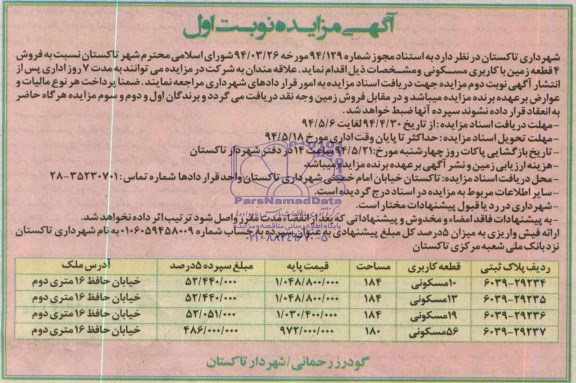 آگهی مزایده نوبت اول
شهرداری تاکستان در نظر دارد به استناد مجوز شماره ۹۴/۱۲۹ مورخه ۹۴/۰۳/۲۶ شورای اسلامی محترم شهر تاکستان نسبت به فروش
۴ قطعه زمین با کاربری مسکونی و مشخصات ذیل اقدام نماید. علاقه مندان به شرکت در مزایده می توانند به مدت ۷ روز اداری پس از
انتشار آگهی نوبت دوم مزایده جهت دریافت اسناد مزایده به امور قراردادهای شهرداری مراجعه نمایند. ضمنا پرداخت هر نوع مالیات و
عوارض بر عهده برنده مزایده میباشد و در مقابل فروش زمین وجه نقد دریافت می گردد و برندگان اول و دوم و سوم مزایده هرگاه حاضر
به انعقاد قرارداد نشوند سپرده آنها ضبط خواهد شد.
- مهلت دریافت اسناد مزایده: از تاریخ ۹۴/۴/۳۰ لغایت ۹۴/۵/۶
- مهلت تحویل اسناد مزایده: حداکثر تا پایان وقت اداری مورخ ۹۴/۵/۱۸
- تاریخ بازگشایی پاکات روز چهارشنبه مورخ ۹۴/۵/۲۱ ساعت ۱۴ در دفتر شهردار تاکستان
- هزینه ارزیابی زمین و نشر آگهی بر عهده برنده مزایده میباشد
- محل دریافت اسناد مزایده: تاکستان خیابان امام خمینی شهرداری تاکستان واحد قراردادها شماره تماس: ۳۵۲۳۰۷۰۱-۰۲۸
- سایر اطلاعات مربوط به مزایده در اسناد درج گردیده است.
- شهرداری در رد یا قبول پیشنهادات مختار است.
- به پیشنهادات فاقد امضاء و مخدوش و پیشنهاداتی که بعد از انقضاء مدت مقرر واصل شود ترتیب اثر داده نخواهد شد.
ارائه فیش واریزی به میزان ۵ درصد کل مبلغ پیشنهادی به عنوان سپرده به حساب شماره ۰۱۰۶۰۵۹۴۵۸۰۰۹ به نام شهرداری تاکستان
نزد بانک ملی شعبه مرکزی تاکستان
ردیف پلاک ثبتی قطعه کاربری مساحت قیمت پایه مبلغ سپرده ۵ درصد آدرس ملک
۶۰۳۹-۲۹۲۳۴ ۱۰ مسکونی ۱۸۴ ۱/۰۴۸/۸۰۰/۰۰۰ ۵۲/۴۴۰/۰۰۰ خیابان حافظ ۱۶ متری دوم
۶۰۳۹-۲۹۲۳۵ ۱۳ مسکونی ۱۸۴ ۱/۰۴۸/۸۰۰/۰۰۰ ۵۲/۴۴۰/۰۰۰ خیابان حافظ ۱۶ متری دوم
۶۰۳۹-۲۹۲۳۶ ۱۹ مسکونی ۱۸۴ ۱/۰۳۰/۴۰۰/۰۰۰ ۵۲/۰۵۱/۰۰۰ خیابان حافظ ۱۶ متری دوم
۶۰۳۹-۲۹۲۳۷ ۵۶ مسکونی ۱۸۰ ۹۷۲/۰۰۰/۰۰۰ ۴۸۶/۰۰۰/۰۰۰ خیابان حافظ ۱۶ متری دوم
گودرز رحمانی/شهردار تاکستان
ParsNamadData